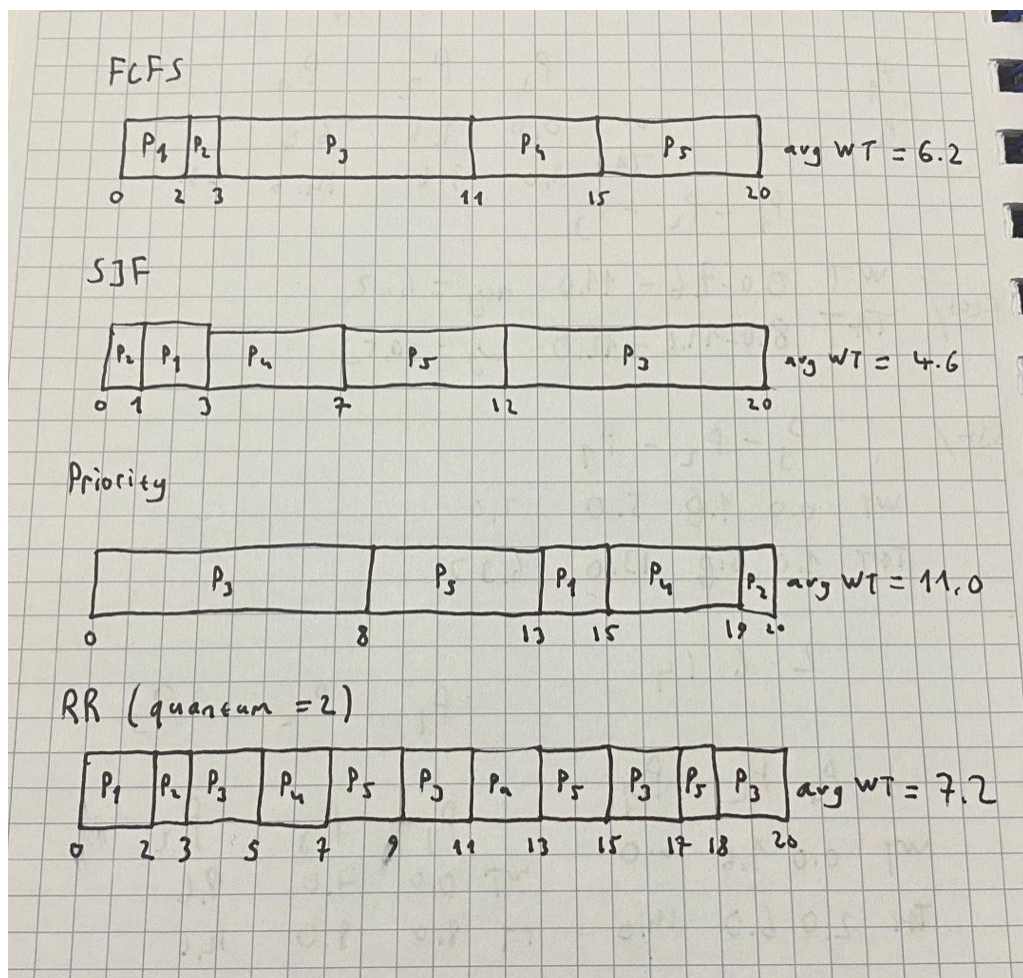 FCFS
P1 P2 P3 P4 P5 avg WT = 6.2
0 2 3 11 15 20
SJF
P2 P1 P4 P5 P3 avg WT = 4.6
0 1 3 7 12 20
Priority
P3 P5 P1 P4 P2 avg WT = 11.0
0 8 13 15 19 20
RR (quantum = 2)
P1 P2 P3 P4 P5 P3 P4 P5 P3 P5 P3 avg WT = 7.2
0 2 3 5 7 9 11 13 15 17 18 20